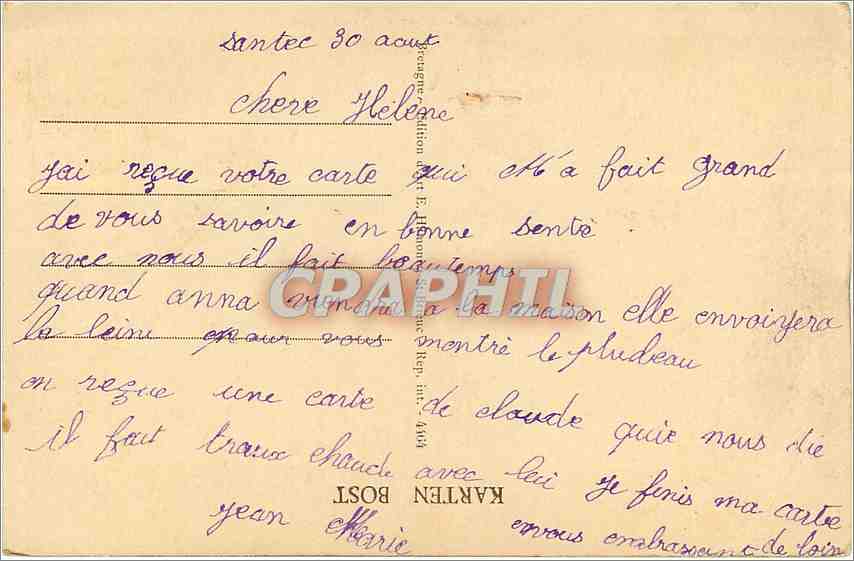 santec 30 aout
chere Hélène
j'ai reçue votre carte qui M'a fait grand
de vous savoire en bonne senté
avec nous il fait beautemps
quand anna viendra a la maison elle envoiyera
la leine pour vous montré le pludeau
on reçue une carte de claude quie nous die
il fait traux chaude avec lui je finis ma carte
envous embrassant de loin
jean Marie
KARTEN BOST
Bretagne. Edition d'Art E. St-Brieuc Rep. int. - 4164
CPAPHIL